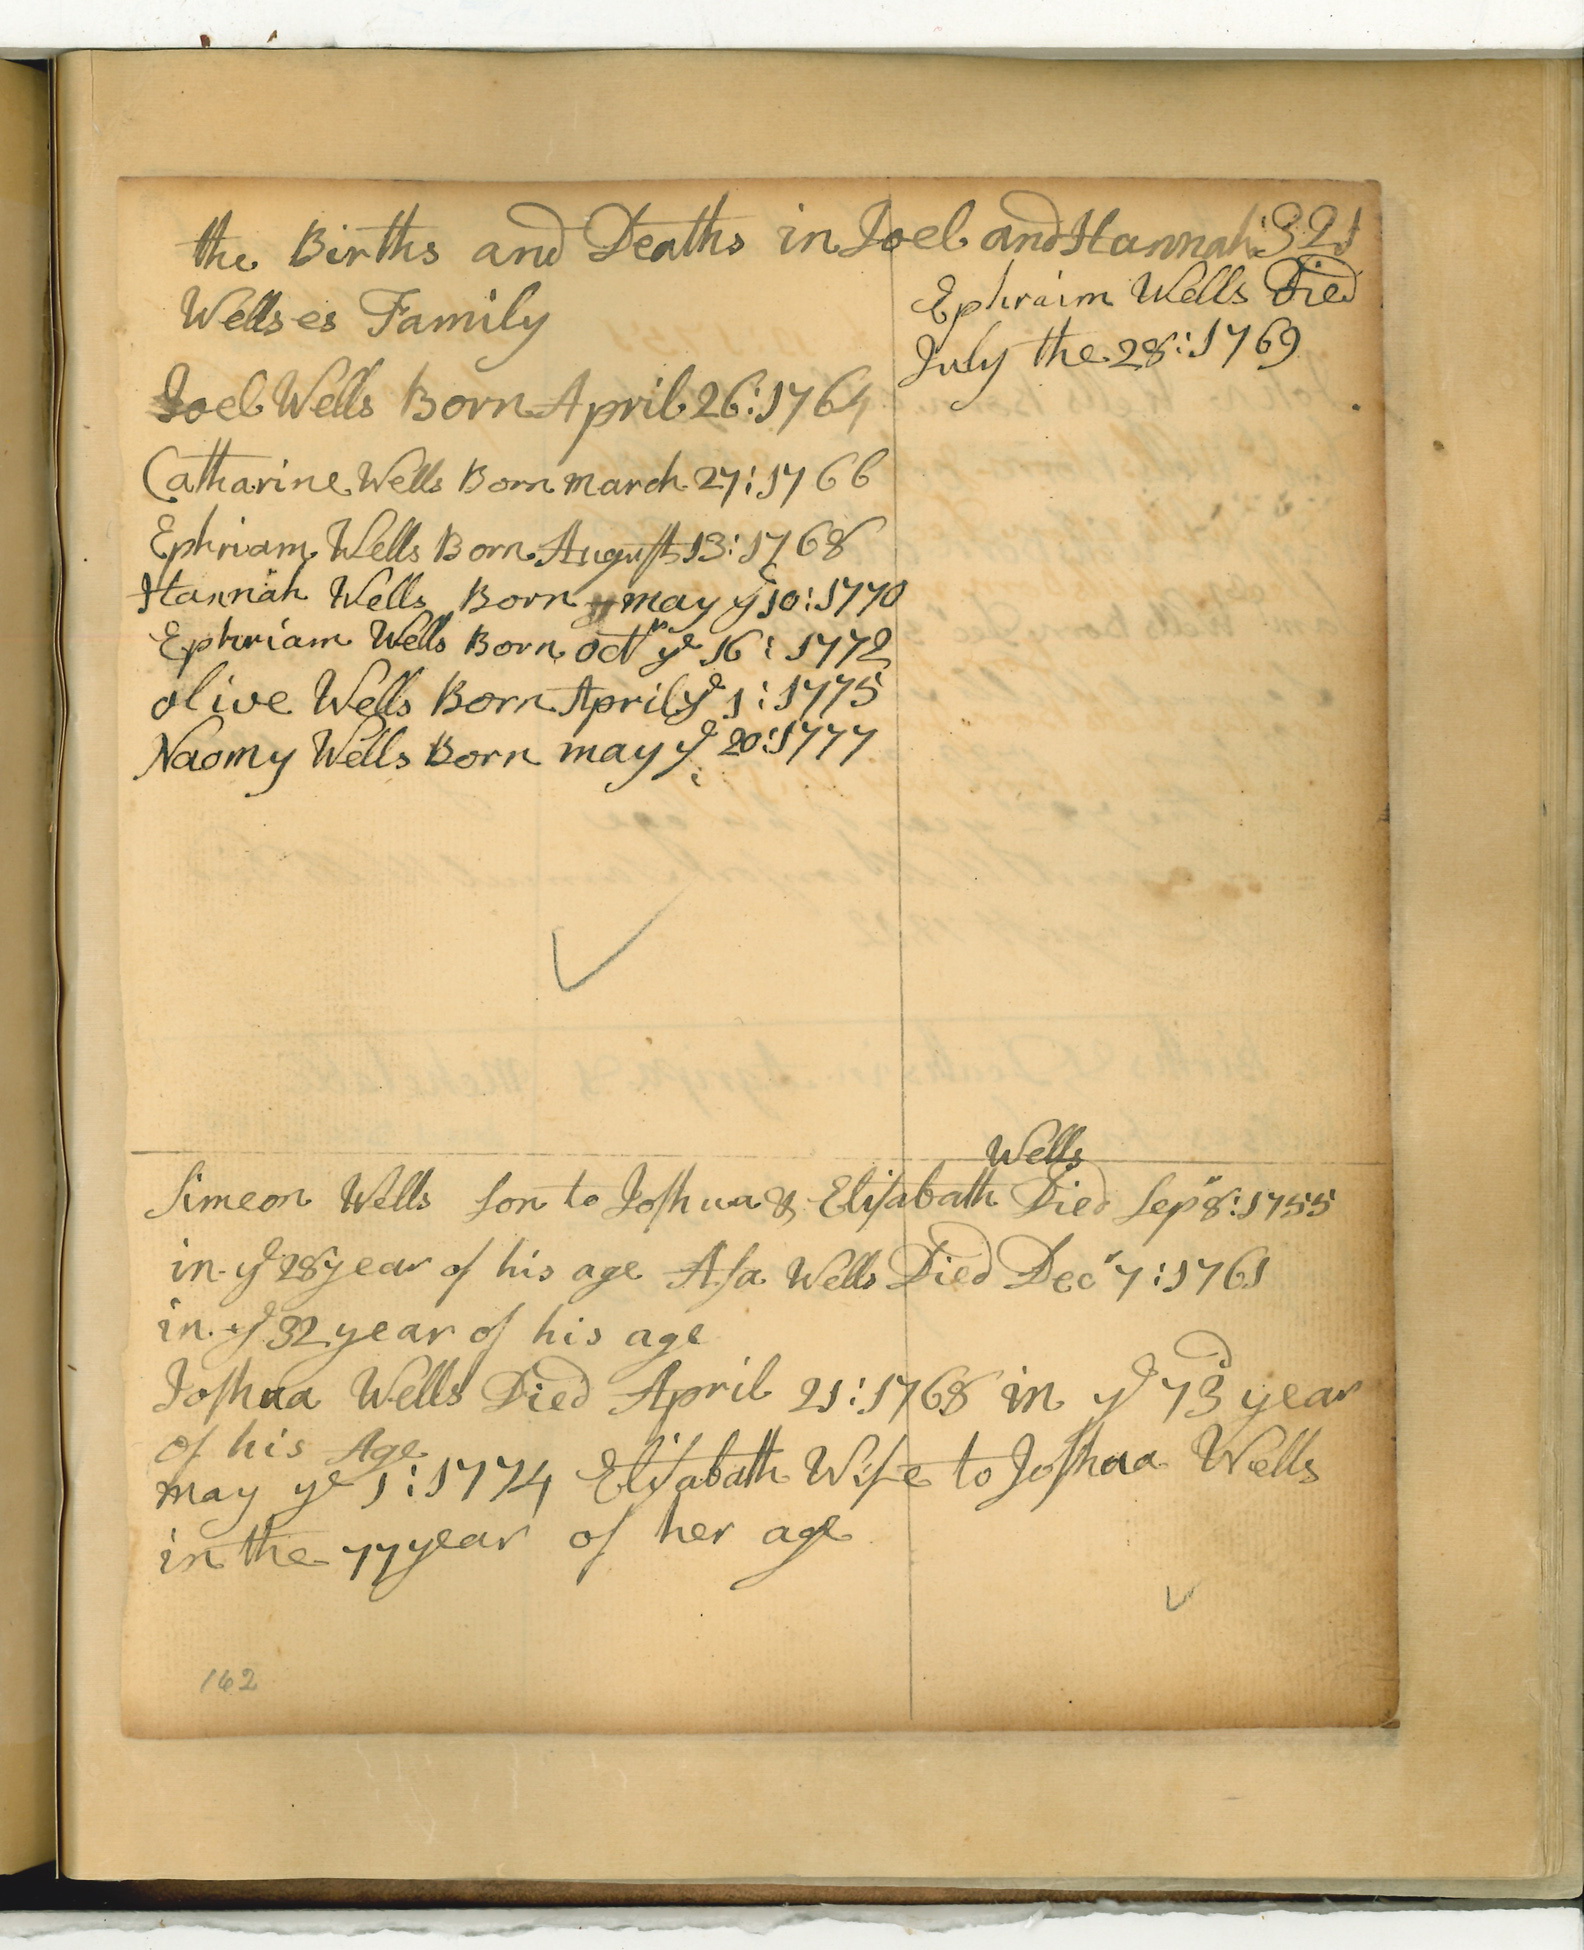 the Births and Deaths in Joel and Hannah 321
Wellses Family
Joel Wells Born April 26:1764
Catharine Wells Born march 27:1766
Ephriam Wells Born August 13:1768
Hannah Wells Born may ye 10:1770
Ephriam Wells Born octr ye 16:1772
olive Wells Born April ye 1:1775
Naomy Wells Born may ye 20:1777
Ephraim Wells Died
July the 28:1769
Wells
Simeon Wells Son to Joshua & Elisabath Died Sepr 8:1755
in ye 28 year of his age Asa Wells Died Decr 7:1761
in ye 32 year of his age
Joshua Wells Died April 21:1768 in ye 73d year
of his Age
may ye 1:1774 Elisabath Wife to Joshua Wells
in the 77 year of her age
162